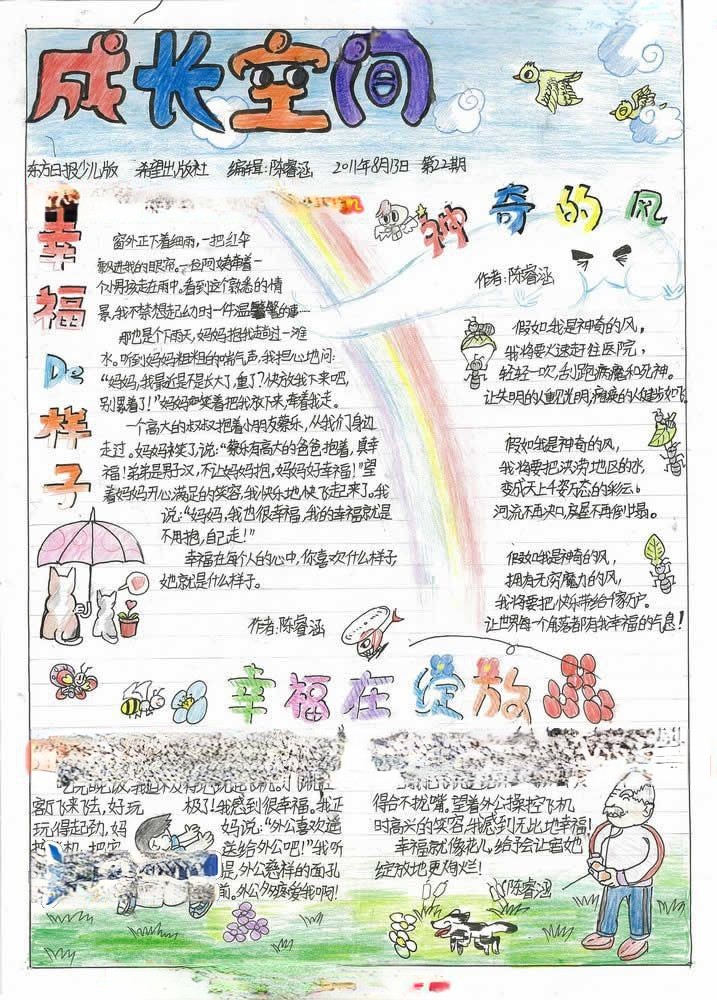 成长空间
东方日报少儿版 希望出版社 编辑:陈睿涵 2011年8月13日 第22期
幸福De样子
窗外正下着细雨,一把红伞
飘进我的眼帘。一位阿姨牵着一
个小男孩走在雨中。看到这个熟悉的情
景,我不禁想起幼时一件温馨的事……
那也是个下雨天,妈妈抱我越过一滩
水。听到妈妈粗粗的喘气声,我担心地问:
“妈妈,我最近是不是长大了,重了?快放我下来吧,
别累着了!”妈妈微笑着把我放下来,牵着我走。
一个高大的叔叔抱着小朋友蔡乐,从我们身边
走过。妈妈笑了,说:“蔡乐有高大的爸爸抱着,真幸
福!弟弟是男子汉,不让妈妈抱,妈妈好幸福!”望
着妈妈开心满足的笑容,我快乐地快飞起来了。我
说:“妈妈,我也很幸福,我的幸福就是
不用抱,自己走!”
幸福在每个人的心中,你喜欢什么样子
她就是什么样子。
作者:陈睿涵
神奇的风
作者:陈睿涵
假如我是神奇的风,
我将要火速赶往医院,
轻轻一吹,刮跑病魔和死神。
让失明的人重见光明,瘫痪的人健步如飞
假如我是神奇的风,
我将要把洪涝地区的水,
变成天上千姿万态的彩云。
河流不再决口,房屋不再倒塌。
假如我是神奇的风,
拥有无穷魔力的风,
我将要把快乐带给千家万户。
让世界每一个角落都有我幸福的气息!
幸福在绽放
客厅飞来飞去,好玩极了!我感到很幸福。我正
玩得起劲,妈妈说:“外公喜欢遥
送给外公吧!”我听
提,外公慈祥的面孔
前。外公多疼爱我啊!
得合不拢嘴,望着外公操控飞机
时高兴的笑容,我感到无比地幸福!
幸福就像花儿,给予会让它她
绽放地更灿烂!
陈睿涵